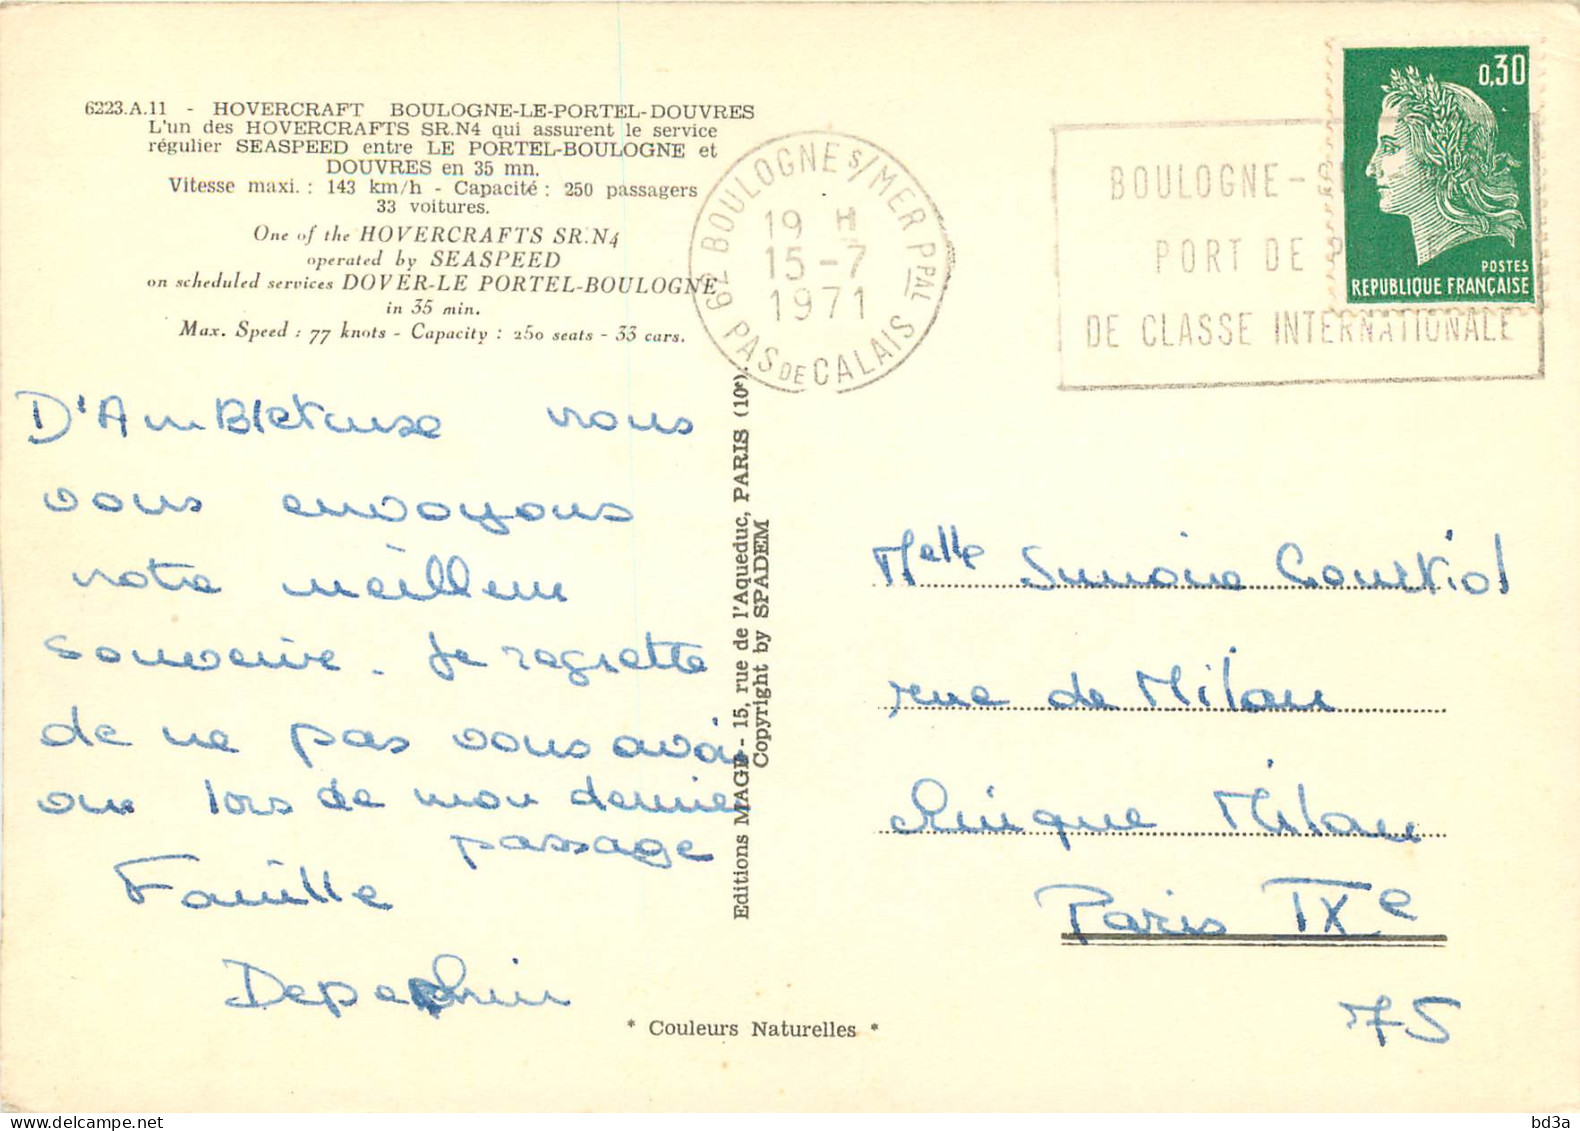 6223.A.11 - HOVERCRAFT BOULOGNE-LE-PORTEL-DOUVRES
L'un des HOVERCRAFTS SR.N4 qui assurent le service
régulier SEASPEED entre LE PORTEL-BOULOGNE et
DOUVRES en 35 mn.
Vitesse maxi. : 143 km/h - Capacité : 250 passagers
33 voitures.
One of the HOVERCRAFTS SR.N4
operated by SEASPEED
on scheduled services DOVER-LE PORTEL-BOULOGNE
in 35 min.
Max. Speed : 77 knots - Capacity : 250 seats - 33 cars.
62 BOULOGNE S/MER PPAL
19 H
15-7
1971
PAS DE CALAIS
BOULOGNE-
PORT DE
DE CLASSE INTERNATIONALE
0,30
POSTES
REPUBLIQUE FRANÇAISE
D'Ambleteuse nous
vous envoyons
notre meilleur
souvenir. Je regrette
de ne pas vous avoir
lors de mon dernier
passage
Famille
Editions MAGE - 15, rue de l'Aqueduc, PARIS (10e).
Copyright by SPADEM
Melle
rue de Milan
Milan
Paris IXe
75
* Couleurs Naturelles *
bd3a